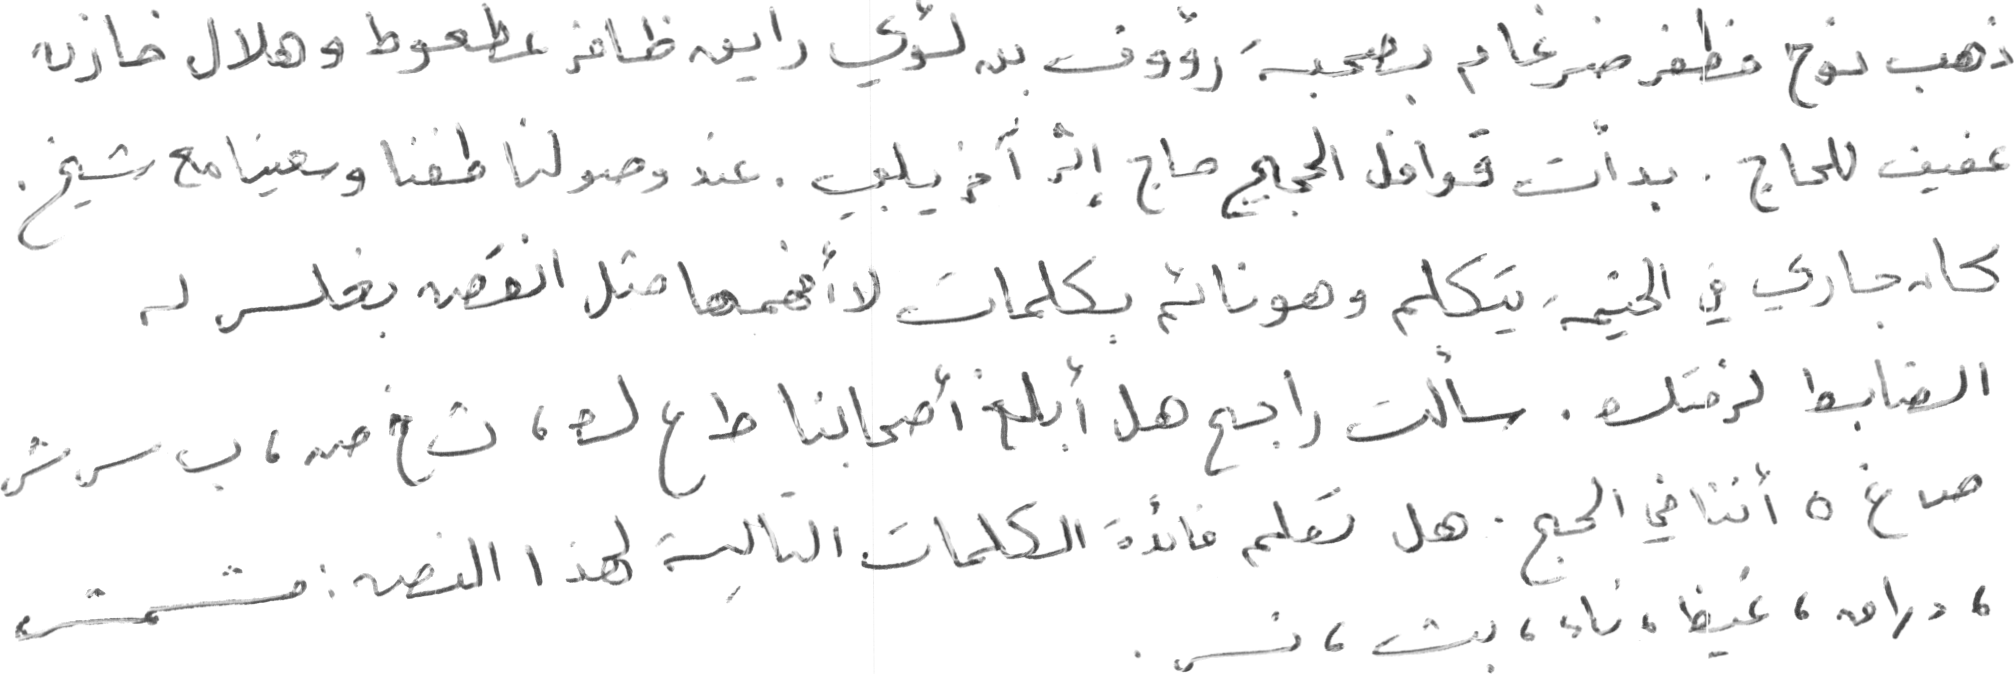 ذهب نوح مظفر ضرغام بصحبة رؤوف بن لؤي رايق ظافر عطعوط و هلال خازن
عفيف للحاج . بدأت قوافل الحجيج حاج إثر آخر يلبي . عند وصولنا طفنا وسعينا مع شيخ .
كان جاري في الخيمة يتكلم وهو نائم بكلمات لا أفهمها مثل انقض بغلس له
الضابط لزمتك . سألت رابح هل أبلغ أصحابنا ط ع ك ، ث خ ص ، ب س ش
ض غ ه أننا في الحج . هل تعلم فائدة الكلمات التالية لهذا النص : مشمش
، دراق ، غيظ ، ناء ، بث ، نس .